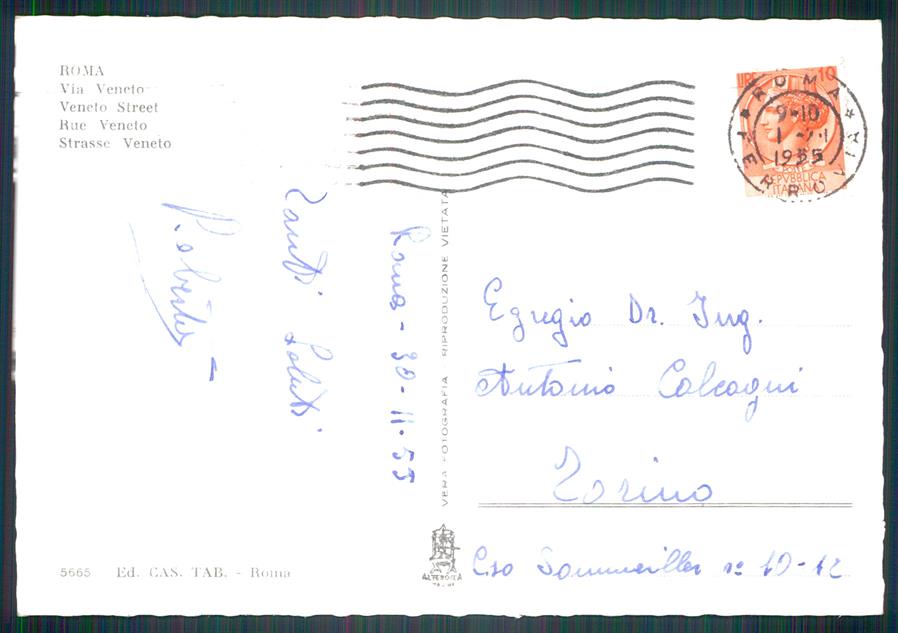 ROMA
Via Veneto
Veneto Street
Rue Veneto
Strasse Veneto
LIRE 10
ROMA
FERROVIA
9-10
1
1955
REPVBBLICA
ITALIANA
Roma - 30-11-55
Tanti Saluti
Roberto
VERA FOTOGRAFIA - RIPRODUZIONE VIETATA
Egregio Dr. Ing.
Antonio Calcagni
Torino
Cso Sommeiller n° 10-12
ALTEROCCA
TERNI
5665 Ed. CAS. TAB. - Roma